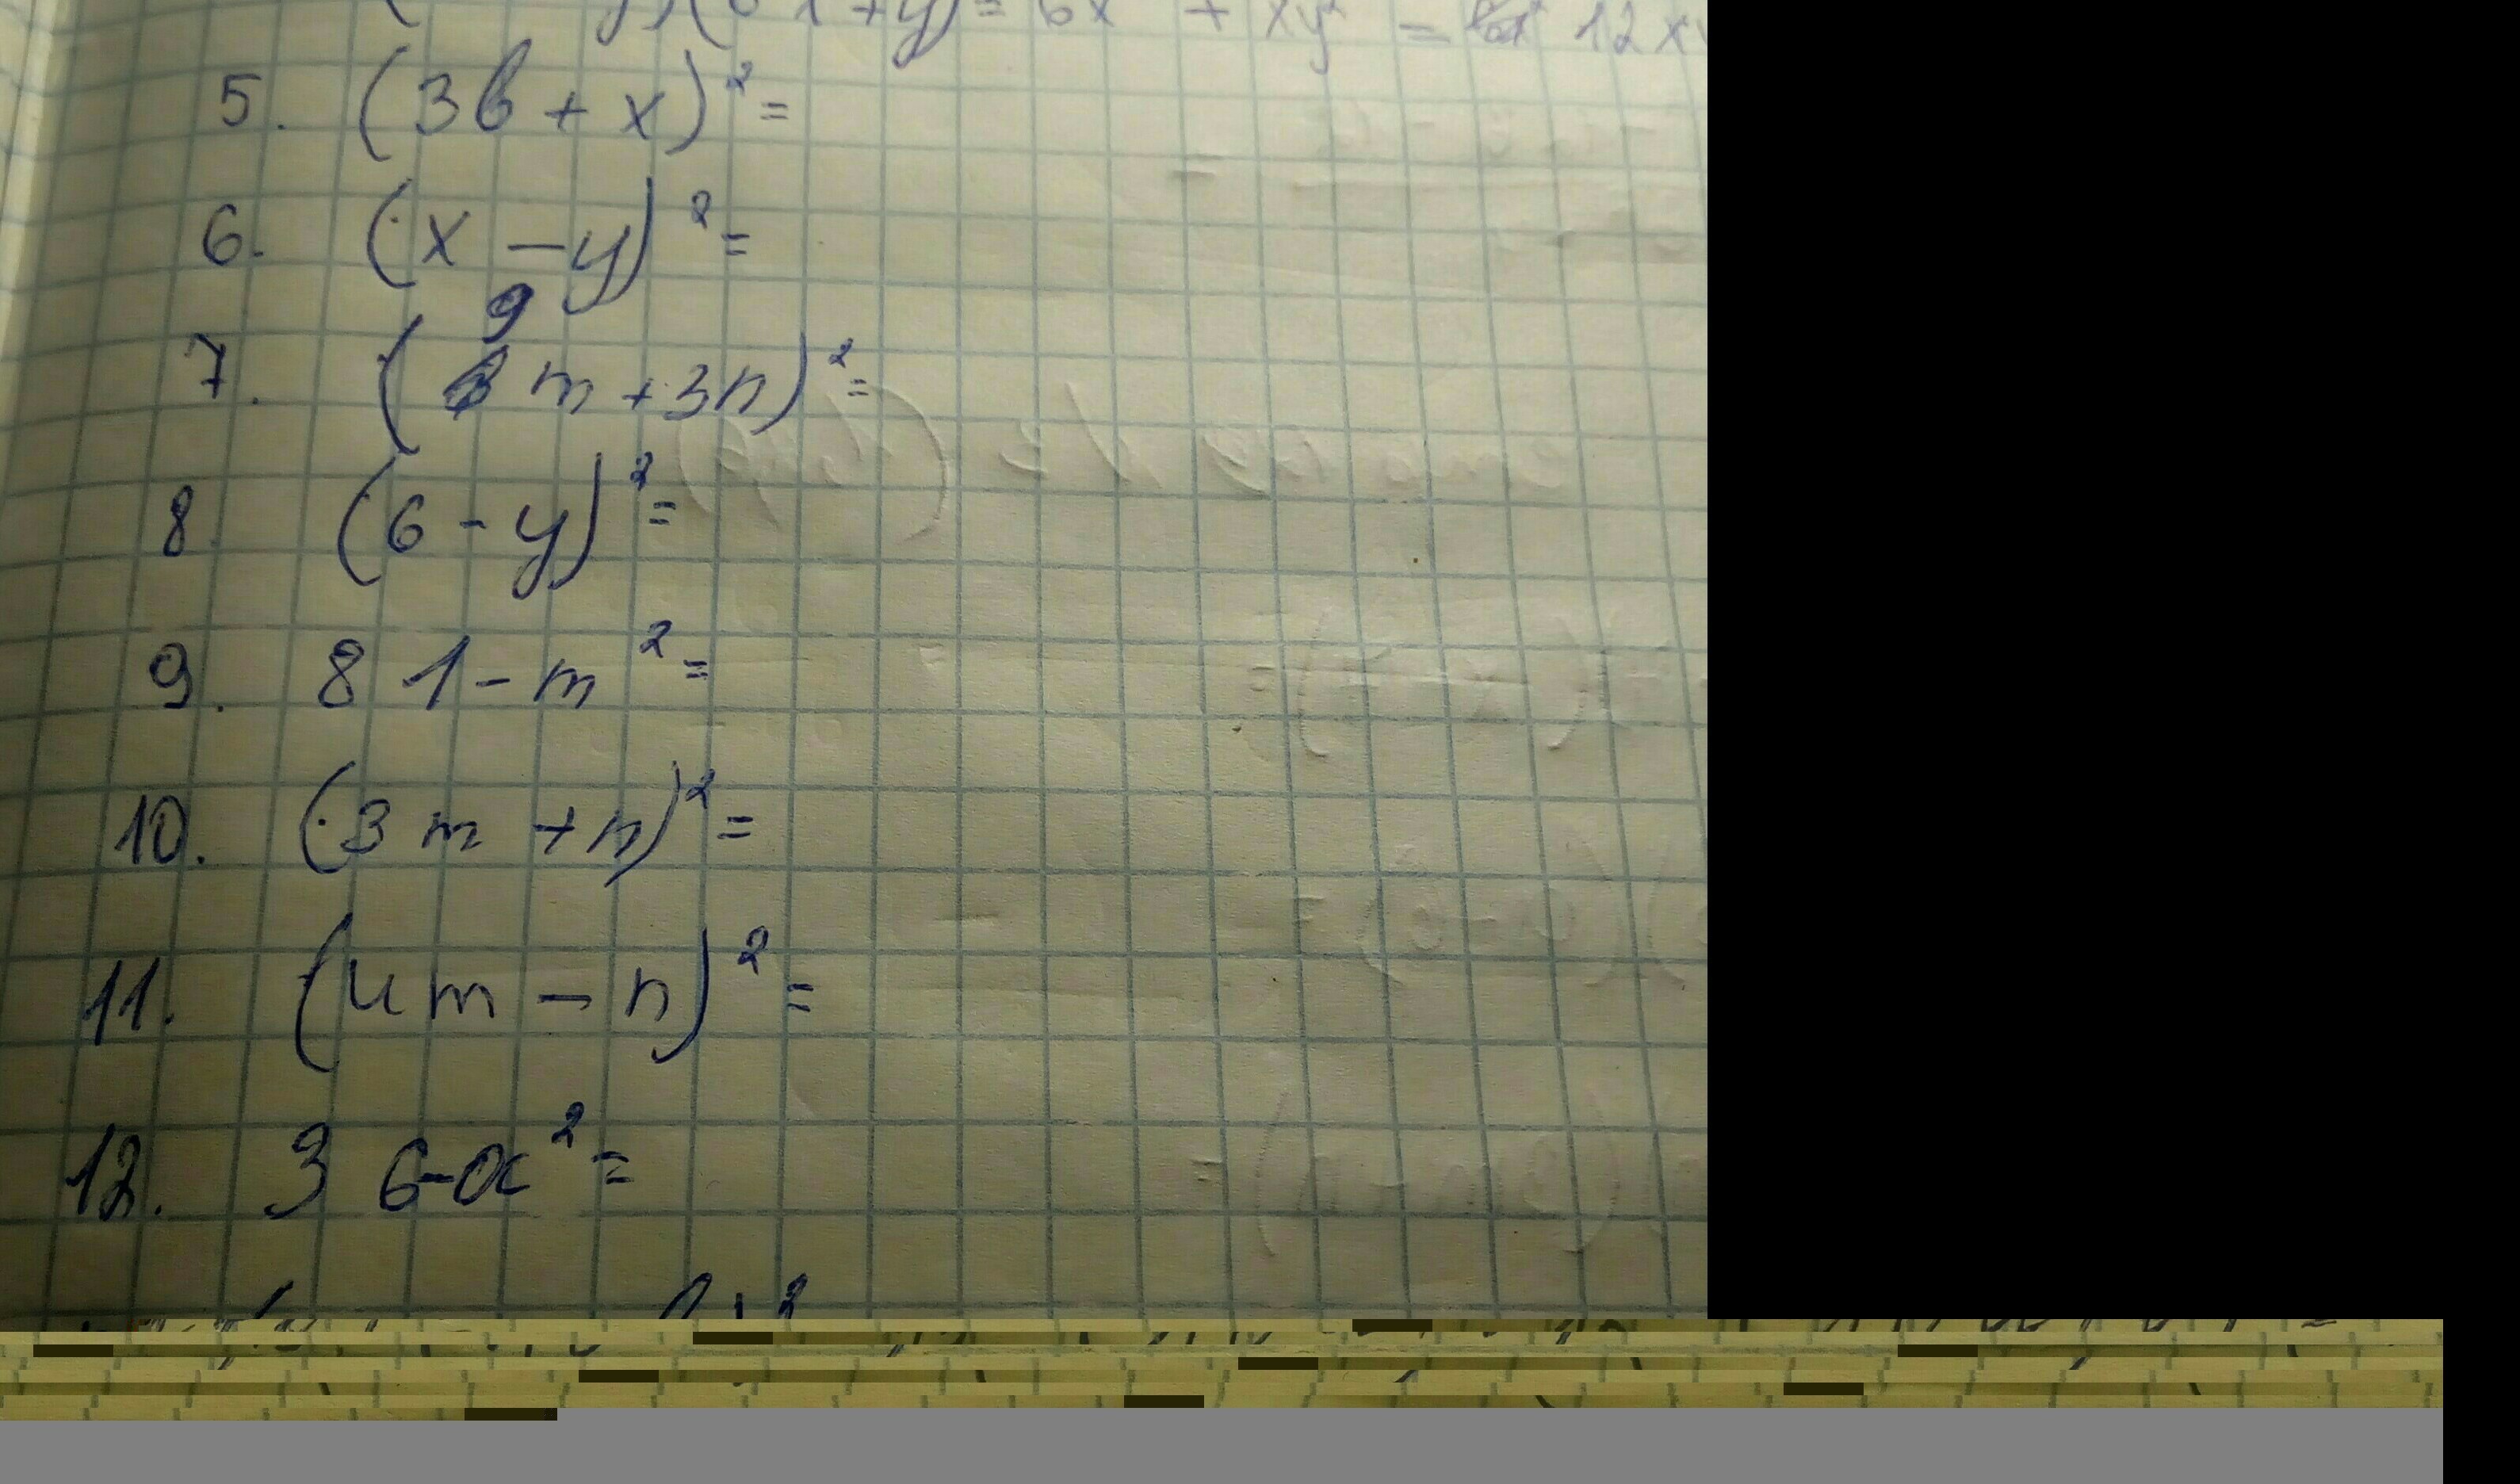 (6x+y) = 6x + xy² = 12x
5. (3b + x)² =
6. (x - y)² =
9
7. (m + 3n)² =
8. (6 - y)² =
9. 81 - m² =
10. (3m + n)² =
11. (4m - n)² =
12. 36 - a² =